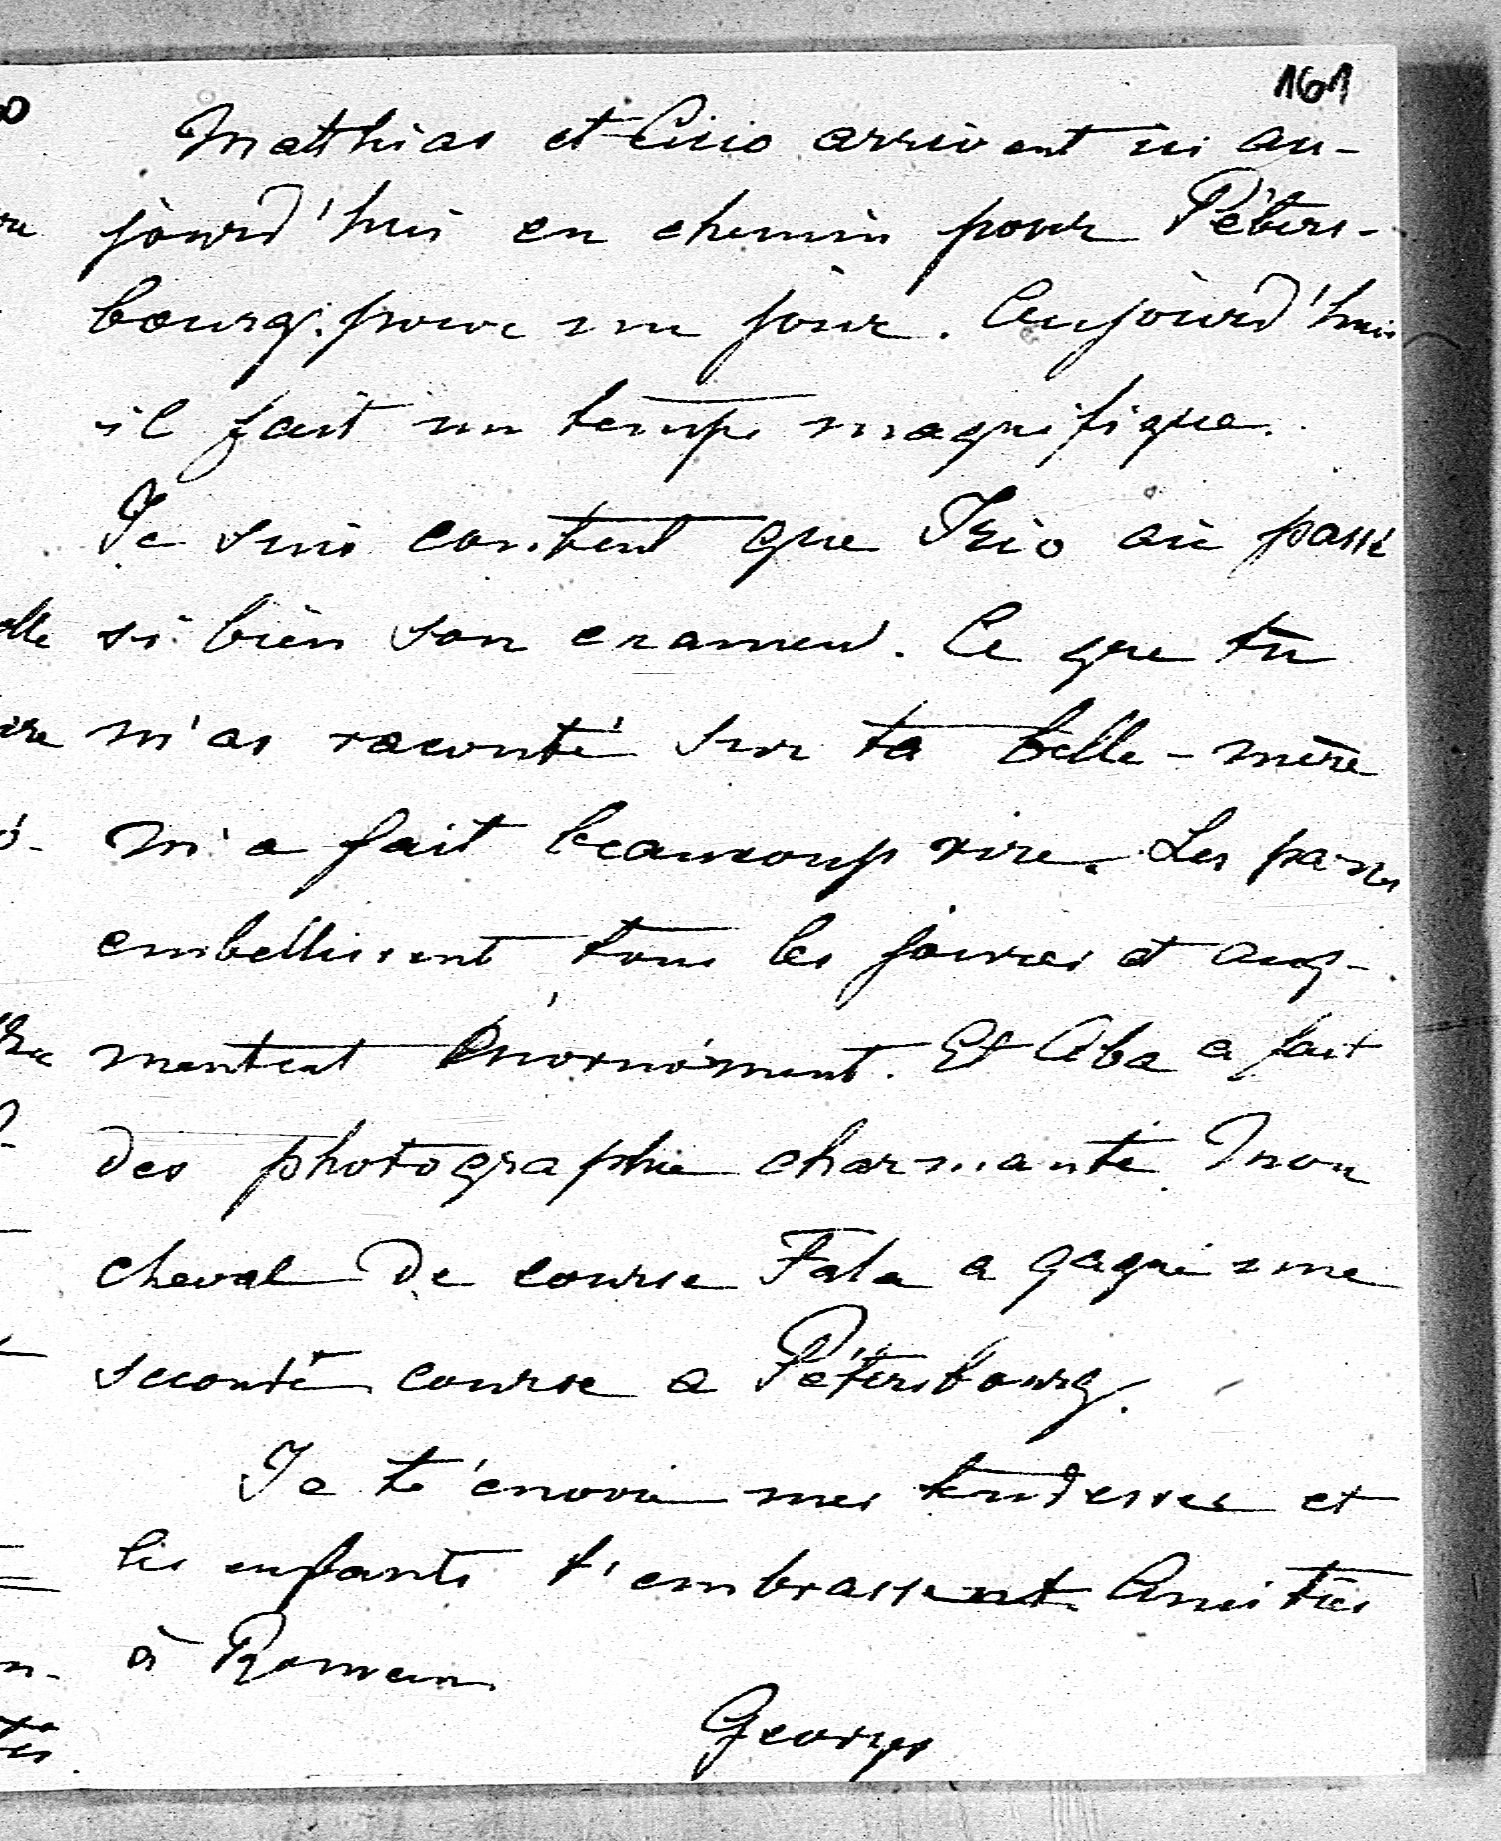 161
Matthias et Cicio arrivent ici au-
jourd'hui en chemin pour Péters-
bourg. pour un jour. Aujourd'hui
il fait un temps magnifique.
Je suis content que Izio ai passé
si bien son examen. Ce que tu
m'as raconté sur ta belle-mère
m'a fait beaucoup rire. Les
embellissent tous les jours et aug-
mentent énormément. Et Aba a fait
des photographie charmante. Mon
cheval de course Fala a gagné une
seconde course a Pétersbourg.
Je t'envoie mes tendresses et
les enfants t'embrassent. Amitiés
à Roman
Georges